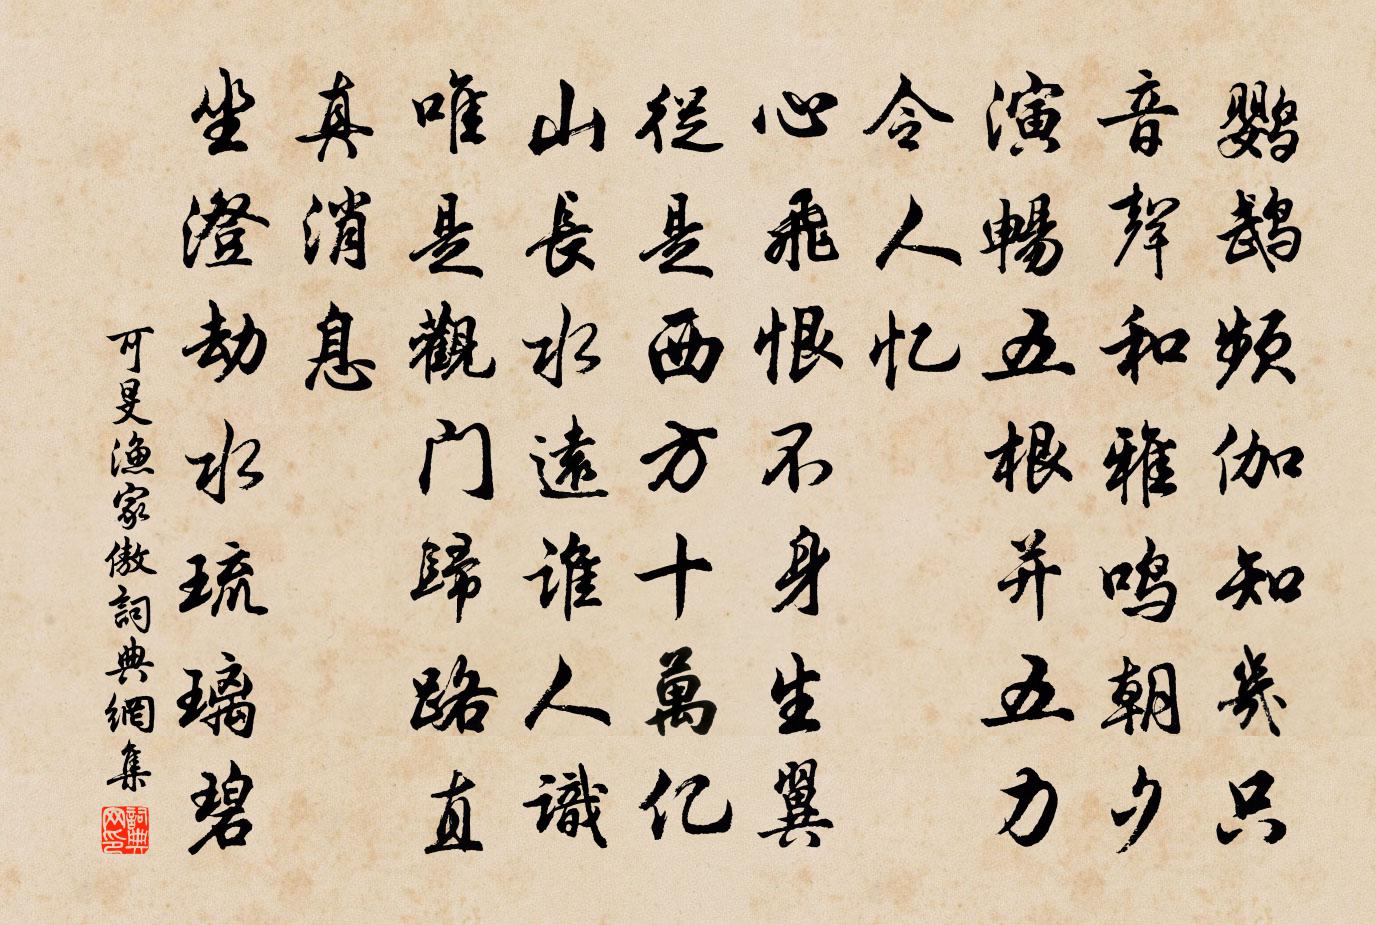 鹦鹉频伽知幾只
音聲和雅鸣朝夕
演暢五根并五力
令人忆
心飛恨不身生翼
從是西方十萬亿
山長水遠誰人識
唯是觀门歸路直
真消息
坐澄劫水琉璃碧
可旻漁家傲詞典網集
詞典网印